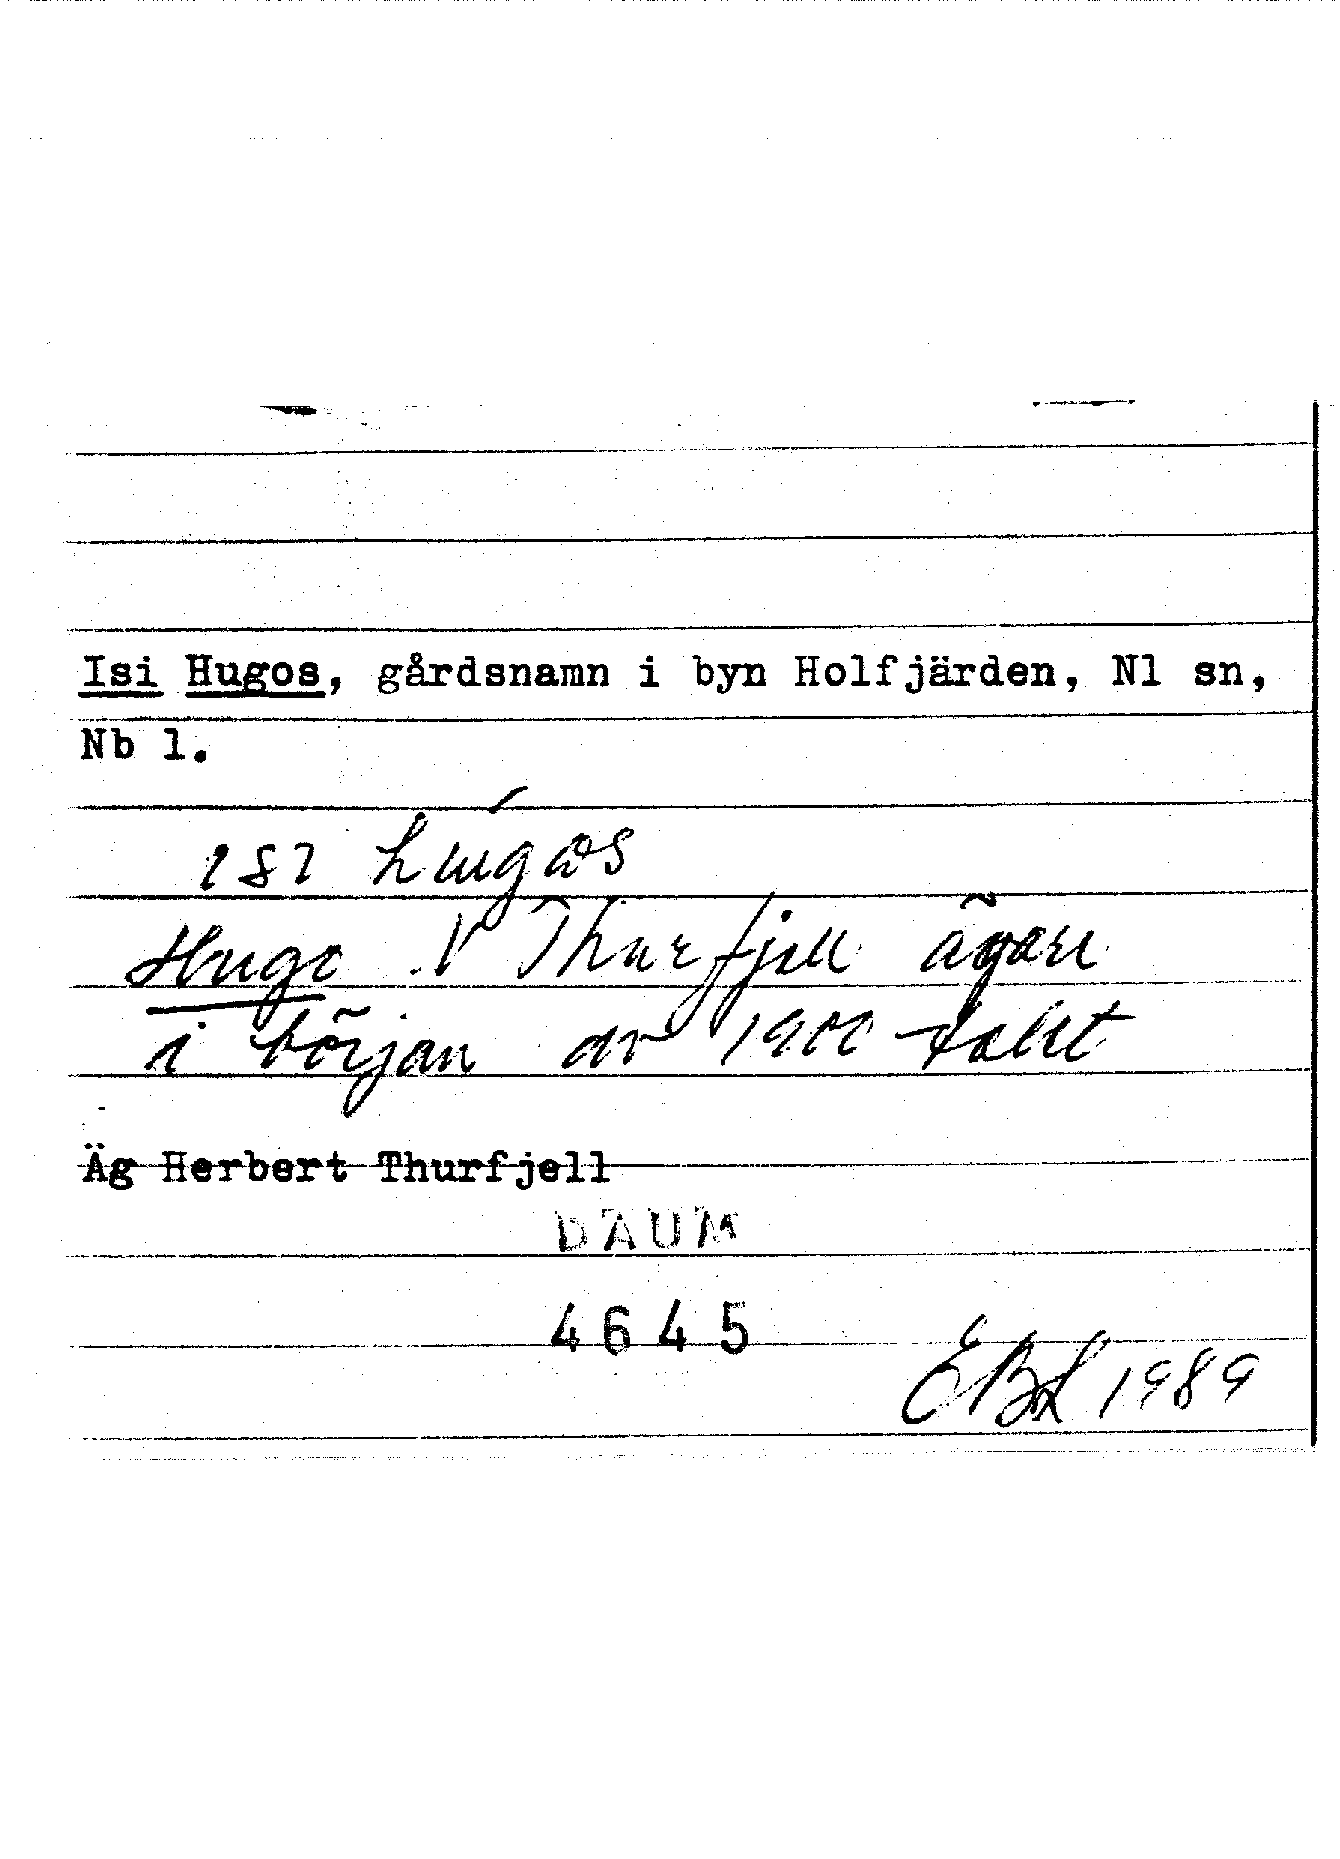 Isi Hugos, gårdsnamn i byn Holfjärden, Nl sn,
Nb l.
ısı hugɷs
Hugo V Thurfjell ägare
i början av 1900-talet
Äg Herbert Thurfjell
DAUM
4645
EBL 1989